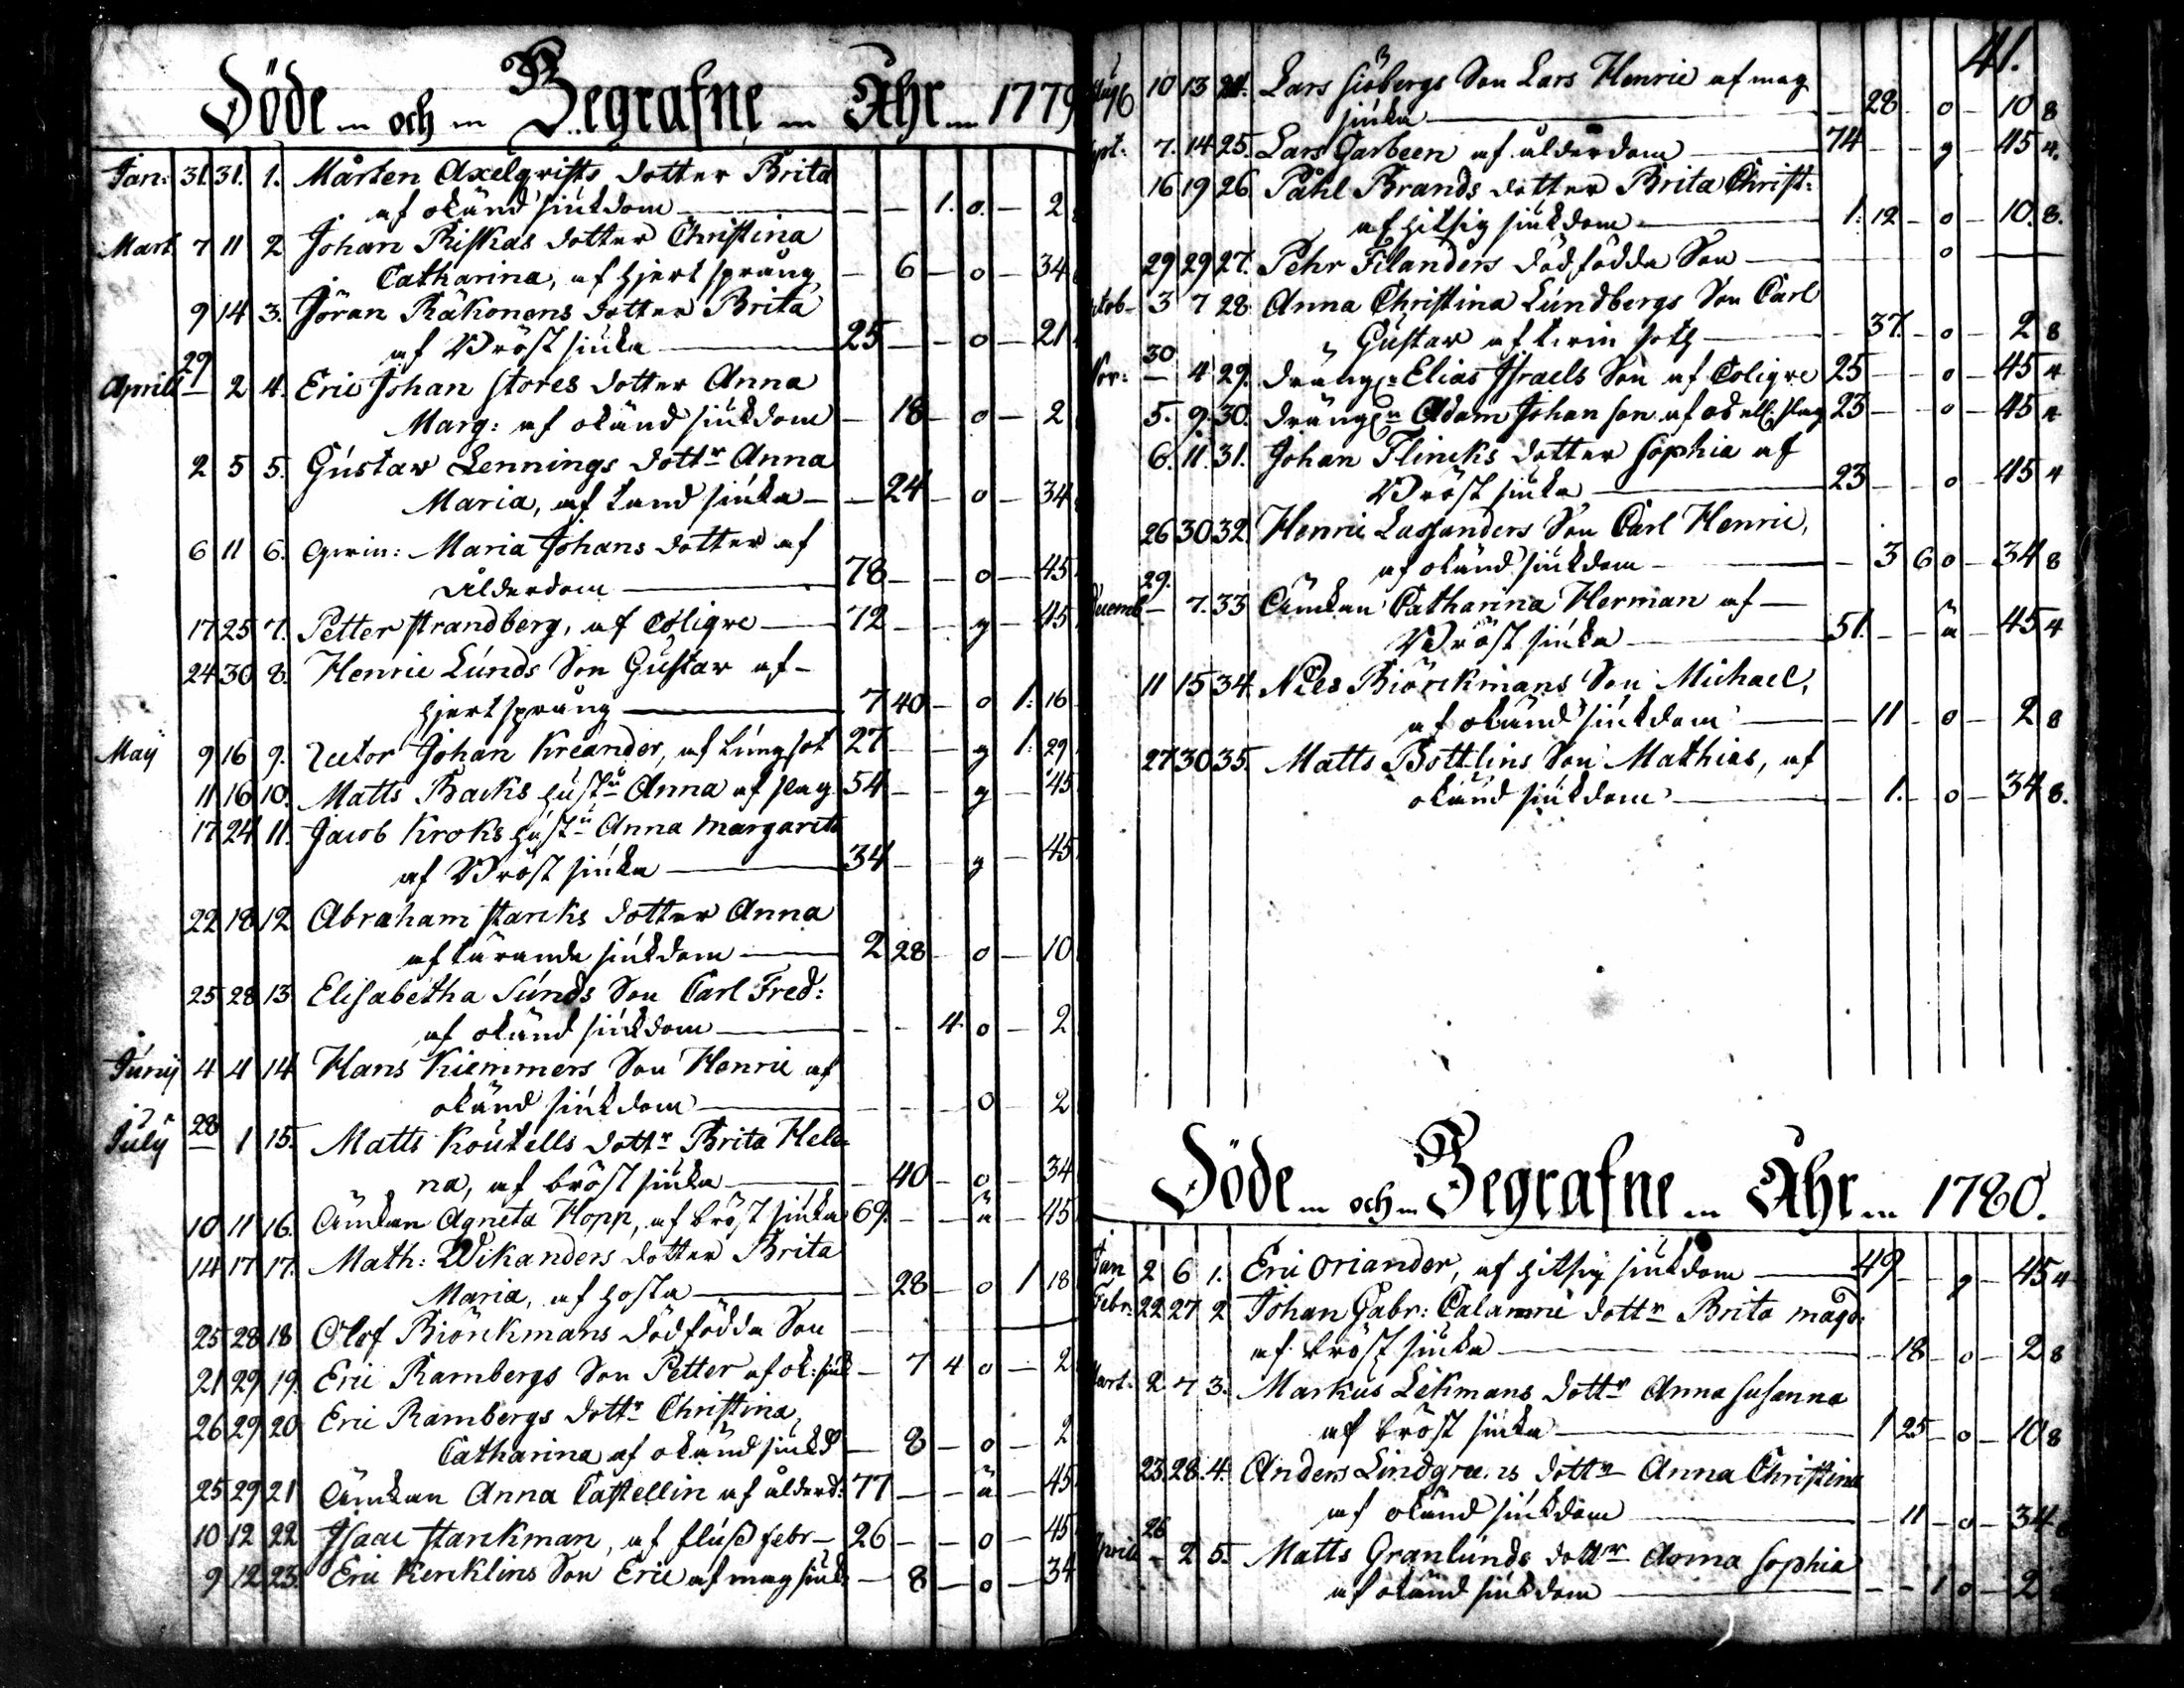 Döde och Begrafne Åhr 1779
Jan: 31. 31. 1. Mårten Axelqvists dotter Brita
af okänd siukdom — — 1. o. — 2
Mart. 7 11 2 Johan Riskas dotter Christina
Catharina, af hjertsprång — 6 — o — 34
9 14 3. Jöran Räkonens dotter Brita
af Bröst siuka 25 — — o — 21
29
Aprill — 2 4. Eric Johan Stores dotter Anna
Marg: af okänd siukdom — 18 — o — 2
2 5 5. Gustav Lennings dottr Anna
Maria, af tand siuka — — 24 — o — 34
6 11 6. Qvin: Maria Johans dotter af
ålderdom 78 — — o — 45
17 25 7. Petter Strandberg, af Colique 72 — — g — 45
24 30 8. Henric Lunds Son Gustav af —
hjertsprång 7 40 — o 1: 16
Maij 9 16 9. Rector Johan Kreander, af lungsot 27 — — g 1: 29
11 16 10. Matts Backs hustru Anna af slag 54 — — g — 45
17 24 11. Jacob Kroks hustru Anna Margareta
af Bröst siuka 34 — — g — 45
22 18 12 Abraham Starcks dotter Anna
af tärande siukdom 2 28 — o — 10
25 28 13 Elisabetha Sunds Son Carl Fred:
af okänd siukdom — — 4 o — 2
Junij 4 4 14 Hans Kiemmers Son Henric af
okänd siukdom — — — o — 2
28
Julij — 1 15. Matts Koutells dottr Brita Hele
na, af bröst siuka — 40 — o — 34
10 11 16. Änkan Agneta Hopp, af bröst siuka 69. — — ä — 45
14 17 17. Math: Wikanders dotter Brita
Maria, af hosta — 28 — o 1 18
25 28 18 Olof Biörckmans dödfödda Son
21 29 19. Eric Rambergs Son Petter af ok: siuk — 7 4 o — 2
26 29 20 Eric Rambergs dottr Christina
Catharina af okänd siukd — 8 — o — 2
25 29 21 Änkan Anna Castellin af ålderd: 77 — — ä — 45
10 12 22 Isaac Starckman, af fluss febr — 26 — — o — 45
9 12 23. Eric Kencklins Son Eric af mag siuk — 8 — o — 34
41.
Aug 10 13 24. Lars Siöbergs Son Lars Henric af mag
siuka — 28 — o — 10 8
Sept: 7. 14 25. Lars Garbeen af ålderdom 74 — — g — 45 4.
16 19 26 Påhl Brands dotter Brita Christ:
af hitsig siukdom 1: 12 — o — 10. 8.
29 29 27. Pehr Filanders dödfödda Son — o —
octob — 3 7 28 Anna Christina Lundbergs Son Carl
Gustav af — 37. — o — 2 8
30
Nov: — 4 29. drängen Elias Israels Son af Colique 25 — — o — 45 4
5. 9. 30. drängen Adam Johan son af slag 23 — — o — 45 4
6. 11. 31. Johan Flincks dotter Sophia af
Bröst siuka 23 — — o — 45 4
26 30 32. Henric Lassanders Son Carl Henric,
af okänd siukdom — 3 6 o — 34 8
29.
Decemb — 7. 33 Änkan Catharina Herman af —
Bröst siuka 51. — — ä — 45 4
11 15 34. Nils Biörckmans Son Michael,
af okänd siukdom — 11 — o — 2 8
27 30 35. Matts Bottlins Son Mathias, af
okänd siukdom — 1. — o — 34 8.
Döde och Begrafne Åhr 1780.
Jan 2 6 1. Eric Oriander, af hitsig siukdom 49 — — g — 45 4
Febr: 22 27 2 Johan Gabr: Calamnii dottr Brita Magd:
af bröst siuka — 18 — o — 2 8
Mart: 2 7 3. Markus Lekmans dottr Anna Susanna
af bröst siuka 1 25 — o — 10 8
23 28 4. Anders Lindgreens dottr Anna Christina
af okänd siukdom — 11 — o — 34 8
26
Aprill — 2 5. Matts Granlunds dottr Anna Sophia
af okänd siukdom — — 1 o — 2